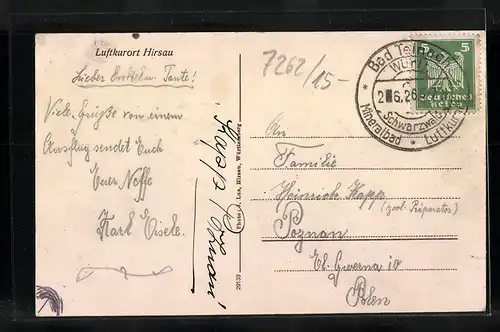 Luftkurort Hirsau
Lieber Onkel u. Tante!
Viele Grüße von einem
Ausflug sendet Euch
Euer Neffe
Karl Eisele.
7262/15-
Bad Teinach
Württ
6.26
Schwarzwald
Mineralbad * Luftkur
5 5
Deutsches
Reich
An
Familie
Heinrich Kapp
(zool. Präparator)
Poznan
Polen
29139